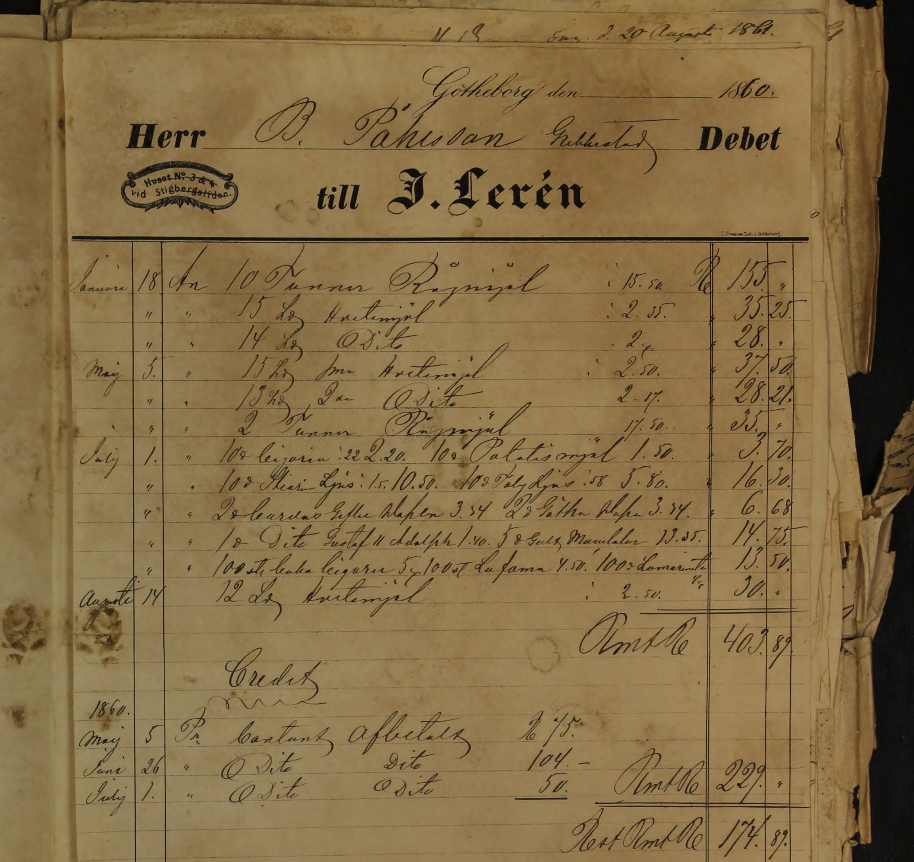 20 Augusti 1861.
Götheborg den 1860.
Herr B. Påhlsson Debet
Huset No 3 & 4
vid Stigbergsliden.
till J. Lerén
Januari 18 An 10 Tunnor Rågmjöl : 15.50. R 155. "
" " 15 L℔ Hvetemjöl : 2.35. " 35.25.
" " 14 L℔ Dito 2. " 28. "
Maj 5. " 15 L℔ Hvetemjöl : 2.50. " 37.50.
" " 13 L℔ Dito 2.17. " 28.21.
" " 2 Tunnor Rågmjöl 17.50. " 35. "
Julij 1. " 10 ℔ :22 2.20. 10 ℔ Potatismjöl 1.50. " 3.70.
" " 10 ℔ Stearin Ljus :1.5. 10.50. 10 ℔ Talg Ljus :58 5.80. " 16.30.
" " 2 ℔ Gethe Wapen 3.34 2 ℔ Götha Wapen 3.34. " 6.68
" " 1 ℔ Dito Gustaf II Adolph 1.40. 5 ℔ 13.35. " 14.75.
" " 100 st Cuba Cigarrer 5, 100 st La fama 4.50. 100 4/" 13.50.
Augusti 14 12 L℔ Hvetemjöl : 2.50. 30. "
Rmt R 403.89
Credit
1860.
Maj 5 Pr Contant afbetalt R 75.
Juni 26 " Dito Dito 104. –
Julij 1. " Dito Dito 50. Rmt R 229. "
Rest Rmt R 174.89.